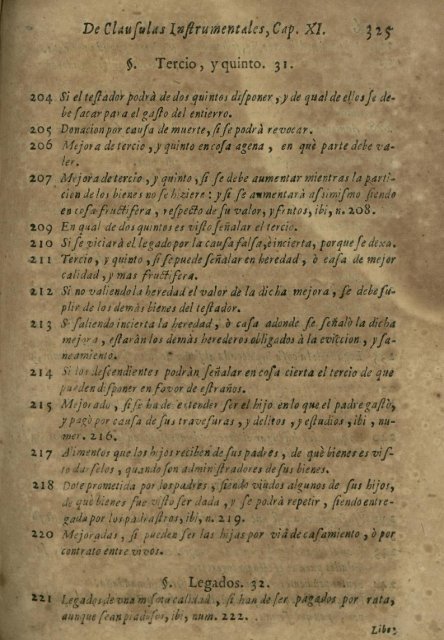 De Clausulas Instrumentales, Cap. XI. 325
§. Tercio, y quinto. 31.
204 Si el testador podrà de dos quintos disponer, y de qual de ellos se de-
be sacar para el gasto del entierro.
205 Donacion por causa de muerte, si se podrà revocar.
206 Mejora de tercio, y quinto en cosa agena, en què parte debe va-
ler.
207 Mejora de tercio, y quinto, si se debe aumentar mientras la parti-
cion de los bienes no se hiziere: y si se aumentarà assimismo siendo
en cosa fructifera, respecto de su valor, y frutos, ibi, n. 208.
209 En qual de dos quintos es visto señalar el tercio.
210 Si se viciarà el legado por la causa falsa, è incierta, porque se dexa.
211 Tercio, y quinto, si se puede señalar en heredad, ò casa de mejor
calidad, y mas fructifera.
212 Si no valiendo la heredad el valor de la dicha mejora, se debe su-
plir de los demàs bienes del testador.
213 Si saliendo incierta la heredad, ò casa adonde se señalò la dicha
mejora, estaràn los demàs herederos obligados à la eviccion, y sa-
neamiento.
214 Si los descendientes podràn señalar en cosa cierta el tercio de que
pueden disponer en favor de estraños.
215 Mejorado, si se ha de entender ser el hijo en lo que el padre gastò,
y pagò por causa de sus travesuras, y delitos, y estudios, ibi, nu-
mer. 216.
217 Alimentos que los hijos reciben de sus padres, de què bienes es vis-
to darselos, quando son administradores de sus bienes.
218 Dote prometida por los padres, siendo viudos algunos de sus hijos,
de què bienes fue visto ser dada, y se podrà repetir, siendo entre-
gada por los padrastros, ibi, n. 219.
220 Mejoradas, si pueden ser las hijas por via de casamiento, ò por
contrato entre vivos.
§. Legados. 32.
221 Legados de una misma calidad, si han de ser pagados por rata,
aunque sean piadosos, ibi, num. 222.